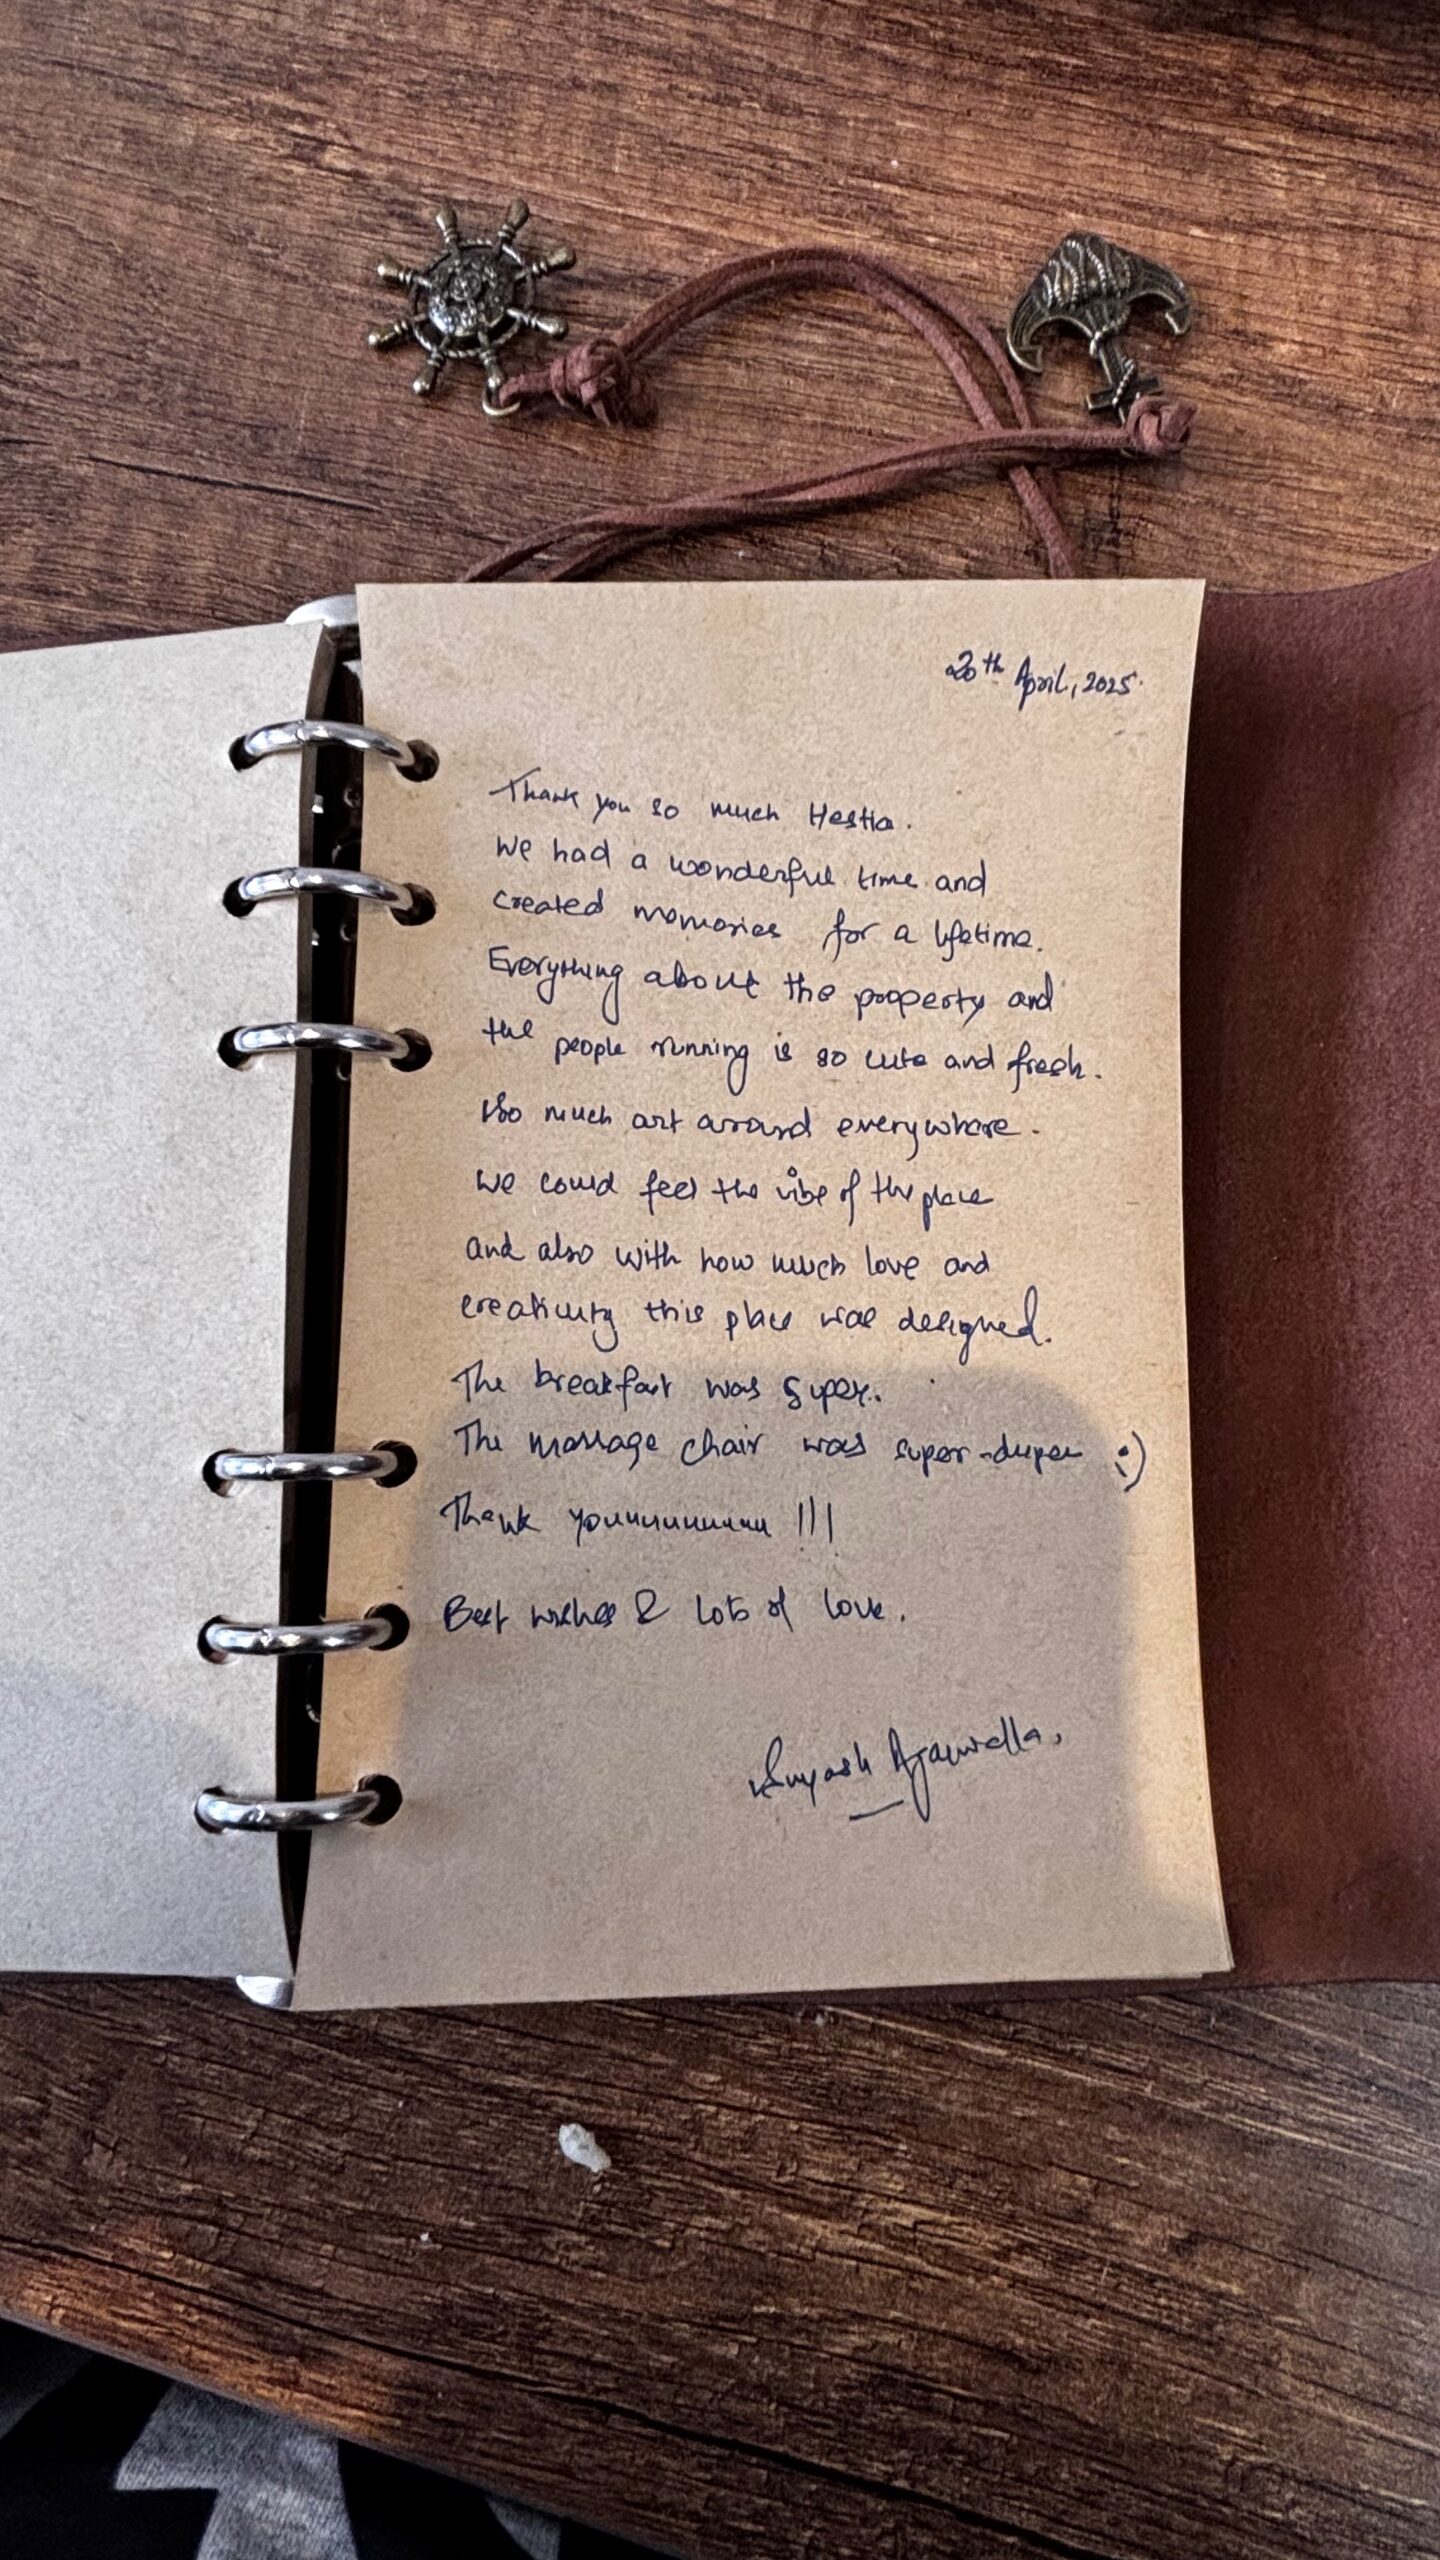 20th April, 2025.
Thank you so much Hestia.
We had a wonderful time and
created memories for a lifetime.
Everything about the property and
the people running is so cute and fresh.
So much art around everywhere.
We could feel the vibe of the place
and also with how much love and
creativity this place was designed.
The breakfast was super.
The massage chair was super-duper :)
Thank youuuuuuuuuu !!!
Best wishes & Lots of love.
Suyash Agarwalla,